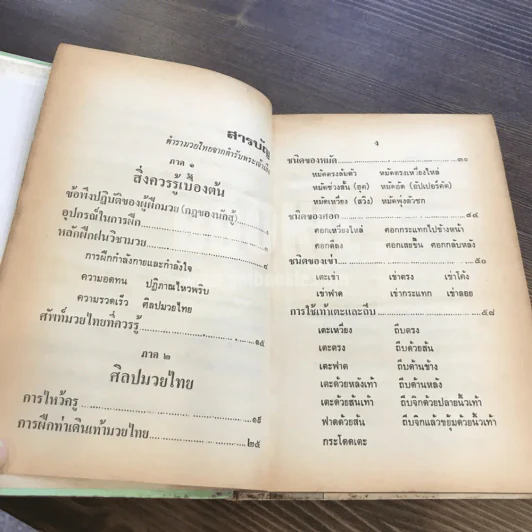 สารบัญ
ตำรามวยไทยจากตำรับพระเจ้าเสือ
ภาค ๑
สิ่งควรรู้เบื้องต้น
ข้อพึงปฏิบัติของผู้ฝึกมวย (กฎของนักสู้)
อุปกรณ์ในการฝึก
หลักฝึกฝนวิชามวย
การฝึกกำลังกายและกำลังใจ
ความอดทน ปฏิภาณไหวพริบ
ความรวดเร็ว ศิลปมวยไทย
ศัพท์มวยไทยที่ควรรู้ ๑๕
ภาค ๒
ศิลปมวยไทย
การไหว้ครู ๑๕
การฝึกท่าเดินเท้ามวยไทย ๒๕
ง
ชนิดของหมัด ๓๐
หมัดตรงล้มตัว หมัดตรงเหวี่ยงไหล่
หมัดช่วงสั้น (ฮุค) หมัดอัด (อัปเปอร์คัต)
หมัดเหวี่ยง (สวิง) หมัดพุ่งตัวชก
ชนิดของศอก ๔๔
ศอกเหวี่ยงไหล่ ศอกกระแทกไปข้างหน้า
ศอกถอง ศอกเสยขึ้น ศอกกลับหลัง
ชนิดของเข่า ๕๐
เตะเข่า เข่าตรง เข่าโค้ง
เข่าฟาด เข่ากระแทก เข่าลอย
การใช้เท้าเตะและถีบ ๕๗
เตะเหวี่ยง ถีบตรง
เตะตรง ถีบด้วยส้น
เตะฟาด ถีบด้านข้าง
เตะด้วยหลังเท้า ถีบด้านหลัง
เตะด้วยส้นเท้า ถีบจิกด้วยปลายนิ้วเท้า
ฟาดด้วยส้น ถีบจิกแล้วขยุ้มด้วยนิ้วเท้า
กระโดดเตะ